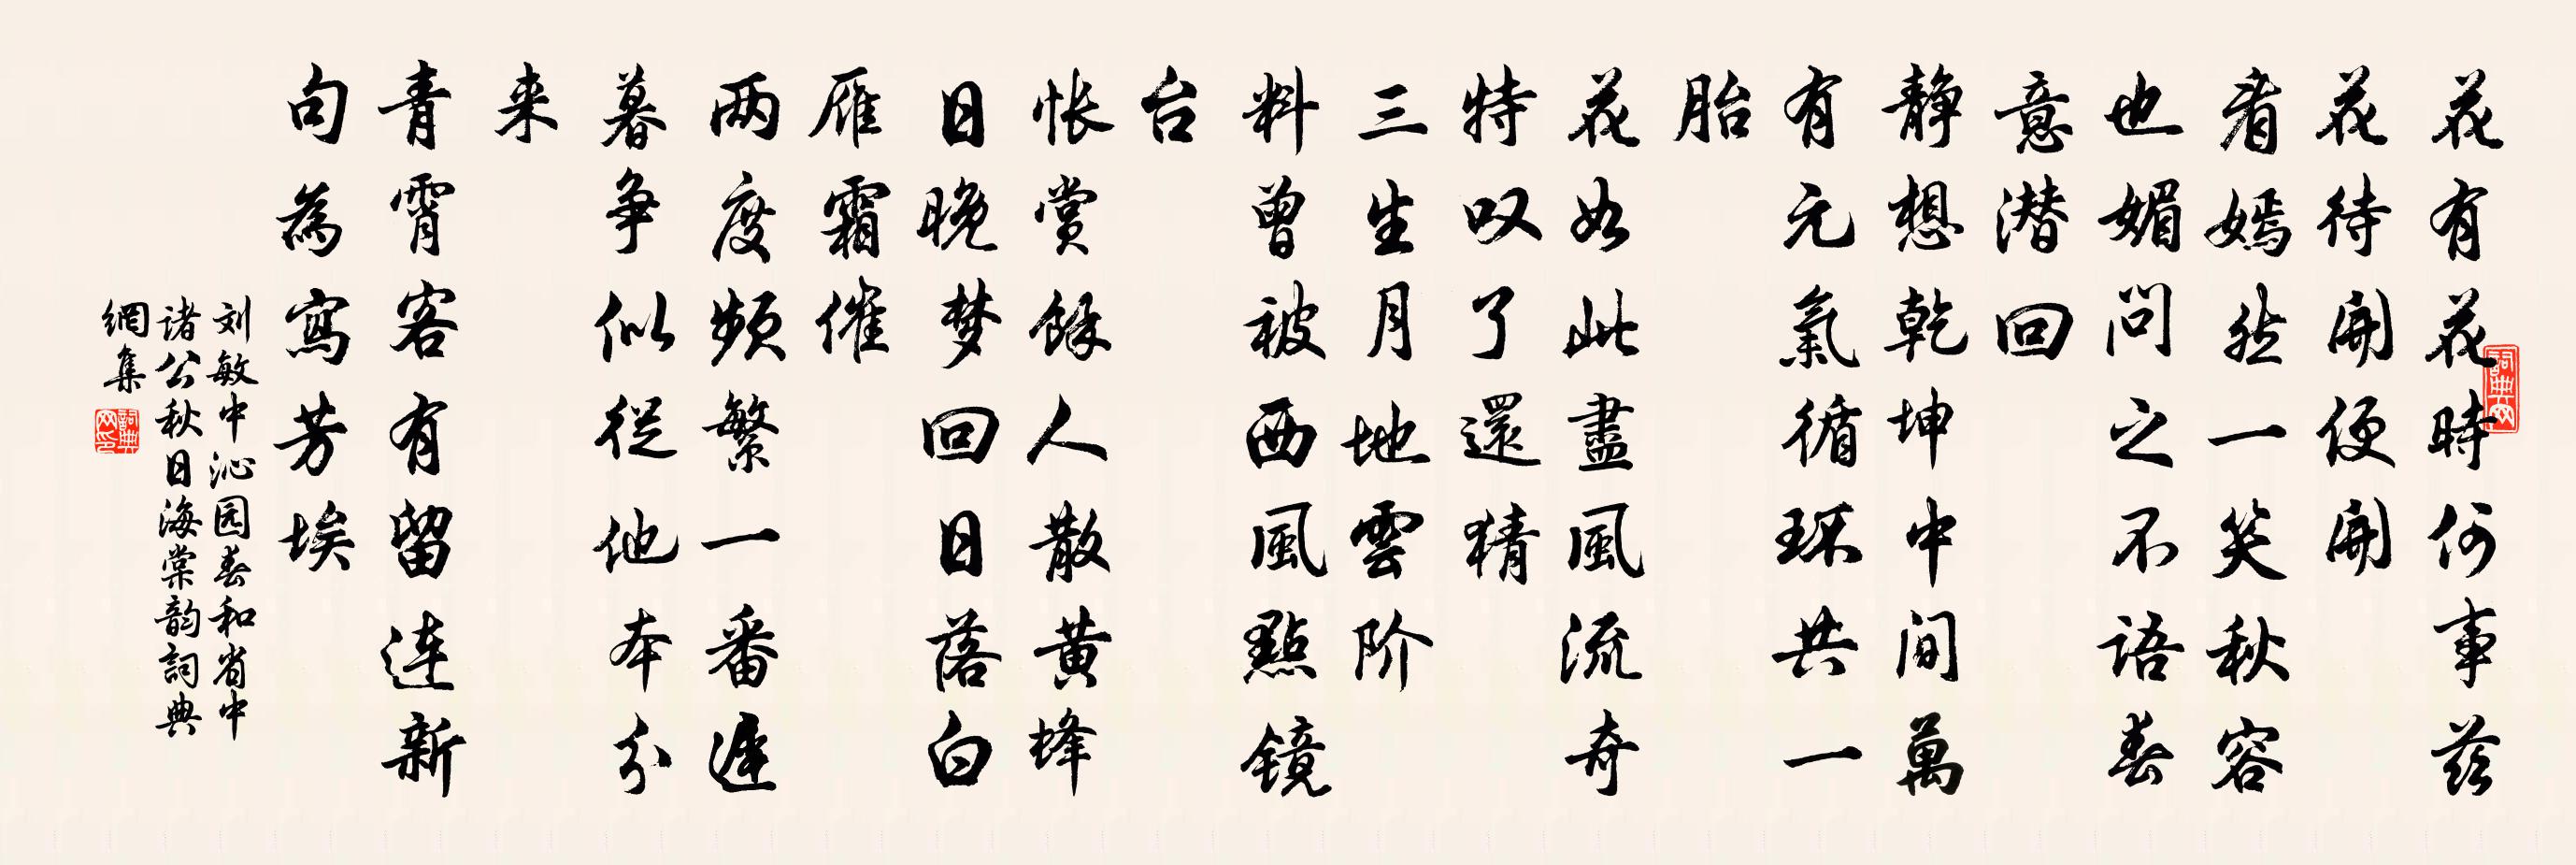 花有花時何事茲
花待開便開
看嫣然一笑秋容
也媚問之不語春
意潜回
静想乾坤中间萬
有元氣循环共一
胎
花如此盡風流奇
特叹了還猜
三生月地雲阶
料曾被西風點镜
台
怅赏餘人散黄蜂
日晚梦回日落白
雁霜催
两度频繁一番遲
暮争似從他本分
来
青霄客有留连新
句為寫芳埃
刘敏中沁园春和省中
诸公秋日海棠韵詞典
網集
詞典网
詞典网印